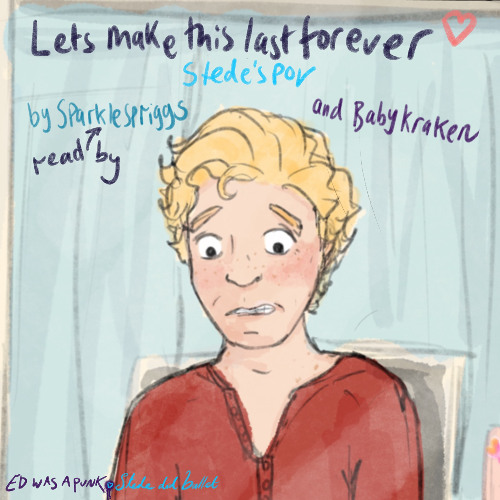 Lets make this last forever
Stede's pov
by Sparklespriggs
and Babykraken
read by
ED WAS A PUNK Stede did Ballet